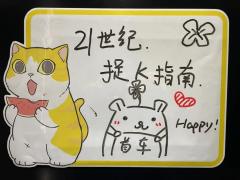 21世纪.
捉K指南.
首车
Happy!